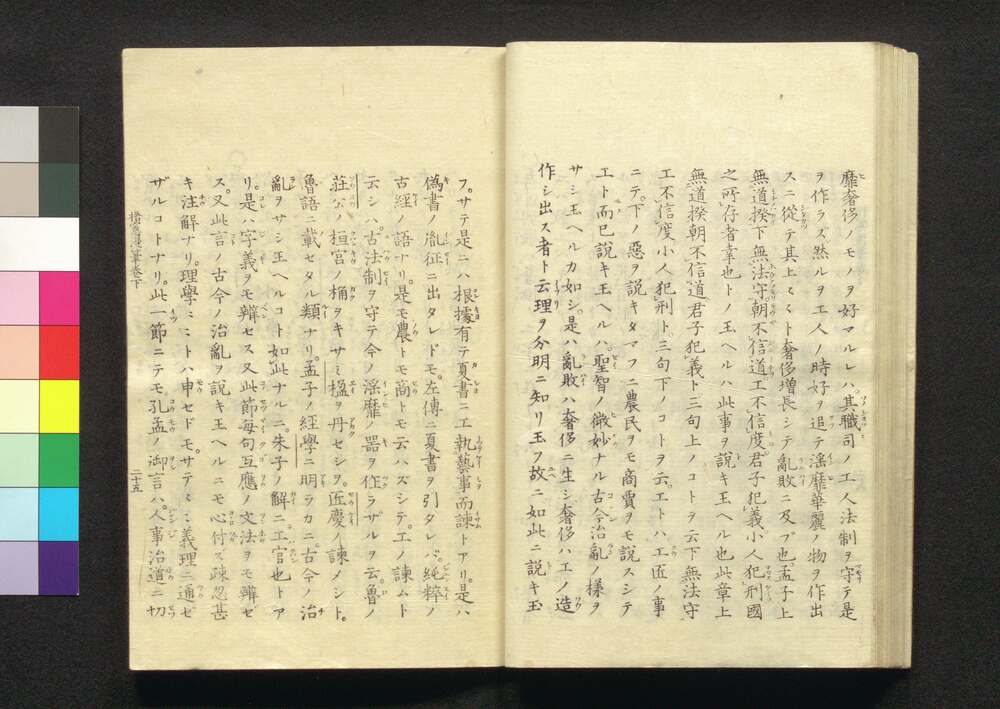 靡奢侈ノモノヲ好マルレハ其職司ノ工人法制ヲ守テ是
ヲ作ラス然ルヲ工人ノ時好ヲ追テ淫靡華麗ノ物ヲ作出
スニ從テ其上ミミト奢侈増長シテ亂敗ニ及フ也孟子上
無道揆下無法守朝不信道工不信度君子犯義小人犯刑國
之所存者幸也トノ玉ヘルハ此事ヲ説キ玉ヘル也此章上
無道揆朝不信道君子犯義ト三句上ノコトヲ云下無法守
工不信度小人犯刑ト三句下ノコトヲ云エトハ工匠ノ事
ニテ下ノ惡ヲ説キタマフニ農民ヲモ商賈ヲモ説スシテ
エト而已説キ玉ヘルハ聖智ノ微妙ナル古今治亂ノ様ヲ
サシ玉ヘルカ如シ是ハ亂敗ハ奢侈ニ生シ奢侈ハエノ造
作シ出ス者ト云理ヲ分明ニ知リ玉フ故ニ如此ニ説キ玉
フサテ是ニハ根據有テ夏書ニ工執藝事而諫トアリ是ハ
僞書ノ胤征ニ出タレドモ左傳ニ夏書ヲ引タレバ純粹ノ
古經ノ語ナリ是モ農トモ商トモ云ハズシテエノ諫ムト
云シハ古法制ヲ守テ今ノ淫靡ノ器ヲ作ラザルヲ云魯ノ
莊公ハ桓宮ノ桷ヲキサミ楹ヲ丹セシヲ匠慶ノ諫メシト
魯語ニ載セタル類ナリ孟子ノ經學ニ明ラカニ古今ノ治
亂ヲサシ王ヘルコト如此ナルニ朱子ノ解ニ工官也トア
リ是ハ字義ヲモ辨セス又此節毎句互應ノ文法ヲモ辨ゼ
ス又此言ノ古今ノ治亂ヲ説キ王ヘルニモ心付ス疎忽甚
キ注解ナリ理學ニミトハ申セドモサテミミ義理ニ通ゼ
ザルコトナリ此一節ニテモ孔孟ノ御言ハ人事治道ニ切
二十五